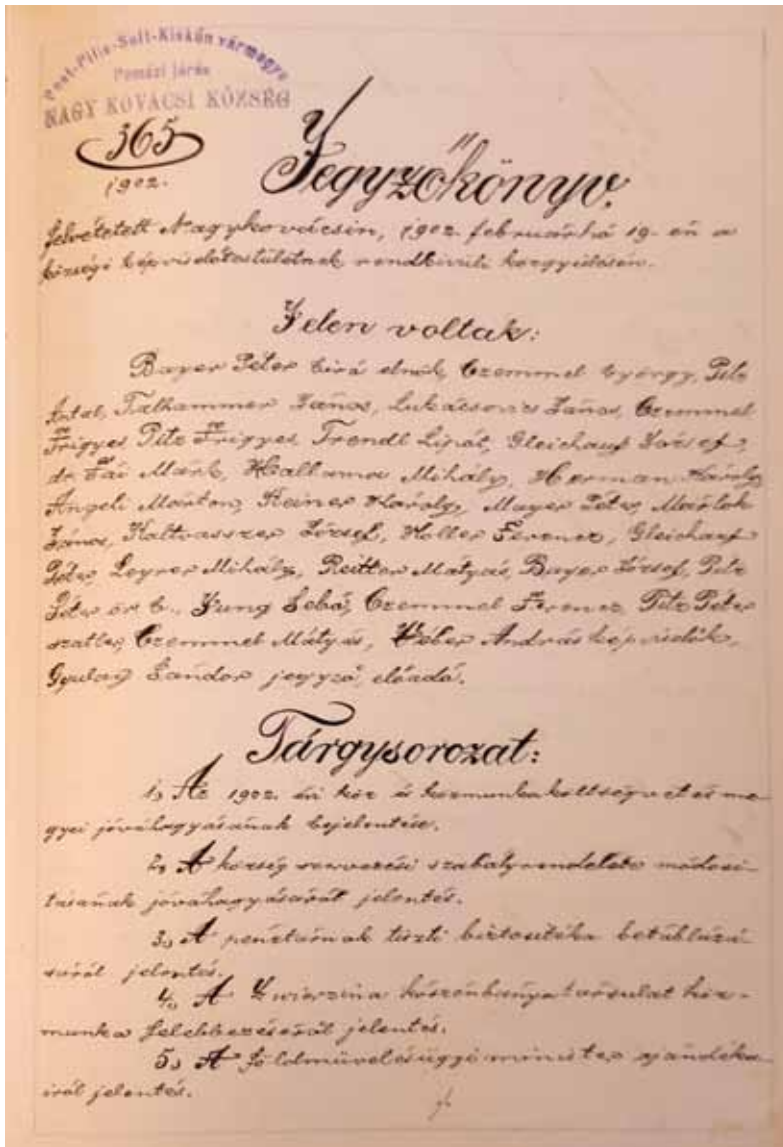 Pest-Pilis-Solt-Kiskún vármegye
Pomázi járás
NAGY KOVÁCSI KÖZSÉG
365
1902.
Jegyzőkönyv.
felvétetett Nagykovácsin, 1902. februárhá 19-én a
községi képviselőtestületnek rendkivüli közgyülésén.
Jelen voltak:
Bayer Péter biró elnök, Czemmel György, Pitz
Antal, Talhammer János, Lukácsovics János, Czemmel
Frigyes, Pitz Frigyes, Trendl Lipót, Gleichauf József,
dr. Mark, Mihály, Herman Károly,
Angeli Márton, Reiner Károly, Mayer Péter, Marlok
János, Kaltvasszer József, Holler Ferencz, Gleichauf
Péter, Mihály, Reitter Mátyás, Bayer József, Pitz
Péter ör b., Jung Sebő, Czemmel Ferencz, Pitz Péter
szatler, Czemmel Mátyás, Wéber András képviselők,
Gyulay Sándor jegyző, előadó.
Tárgysorozat:
1, Az 1902. évi köz és közmunkaköltségvetés me-
gyei jóváhagyásának bejelentése.
2, A község szervezési szabályrendelete módosi-
tásának jóváhagyásáról jelentés.
3, A pénztárnak tiszti biztositéka betáblázá-
sáról jelentés.
4, A Zwierzina kőszénbánya társulat köz-
munka felebbezéséről jelentés.
5, A földmüvelésügyi minister ajándéka-
iról jelentés.